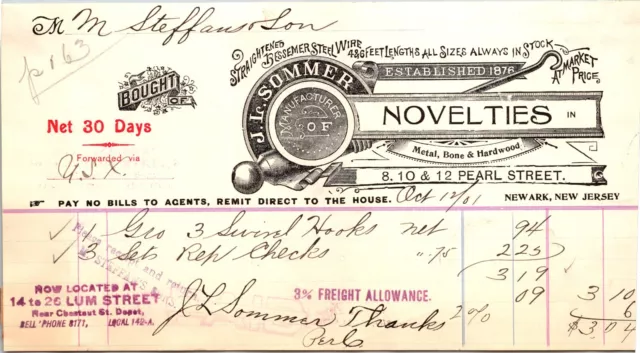 M M Steffans & Son
p 163
STRAIGHTENED BESSEMER STEEL WIRE 4 & 6 FEET LENGTHS ALL SIZES ALWAYS IN STOCK
AT MARKET PRICE
ESTABLISHED 1876
BOUGHT OF
J. L. SOMMER
MANUFACTURER OF
NOVELTIES IN
Metal, Bone & Hardwood
Net 30 Days
Forwarded via
U.S.X.
8. 10 & 12 PEARL STREET.
NEWARK, NEW JERSEY
PAY NO BILLS TO AGENTS, REMIT DIRECT TO THE HOUSE.
Oct 12/01
1 Gro 3 Swivel Hooks net 94
3 Sets Rep Checks ".75 225
319
NOW LOCATED AT
14 to 26 LUM STREET
Near Chestnut St. Depot,
BELL 'PHONE 8171, LOCAL 142-A.
3% FREIGHT ALLOWANCE.
09 3 10
2% 6
$3.04
J L Sommer Thanks
Per C